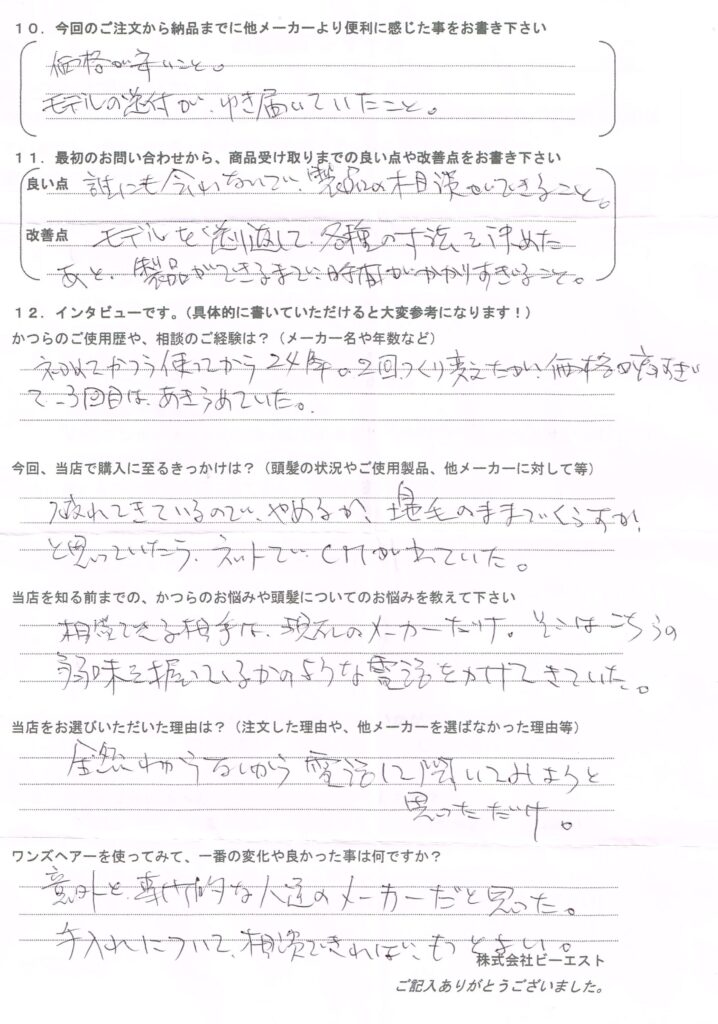 10．今回のご注文から納品までに他メーカーより便利に感じた事をお書き下さい
価格が安いこと。
モデルの送付が、ゆき届いていたこと。
11．最初のお問い合わせから、商品受け取りまでの良い点や改善点をお書き下さい
良い点 誰にも会わないで、製品の相談ができること。
改善点 モデルを送り返して、各種の寸法を決めた
あと、製品ができるまで、時間がかかりすぎること。
12．インタビューです。（具体的に書いていただけると大変参考になります！）
かつらのご使用歴や、相談のご経験は？（メーカー名や年数など）
初めてかつら使ってから24年。2回つくり変えたが、価格が高すぎ
て、3回目は、あきらめていた。
今回、当店で購入に至るきっかけは？（頭髪の状況やご使用製品、他メーカーに対して等）
破れてきているので、やめるか、地毛のままでくらすか！
と思っていたら、ネットで、CMがながれていた。
当店を知る前までの、かつらのお悩みや頭髪についてのお悩みを教えて下さい
相談できる相手は、現在のメーカーだけ。そこはこちらの
弱味を握っているかのような電話をかけてきていた。
当店をお選びいただいた理由は？（注文した理由や、他メーカーを選ばなかった理由等）
全然わからないから電話して聞いてみようと
思っただけ。
ワンズヘアーを使ってみて、一番の変化や良かった事は何ですか？
意外と、専門的な人達のメーカーだと思った。
手入れについて、相談できれば、もっとよい。
株式会社ビーエスト
ご記入ありがとうございました。